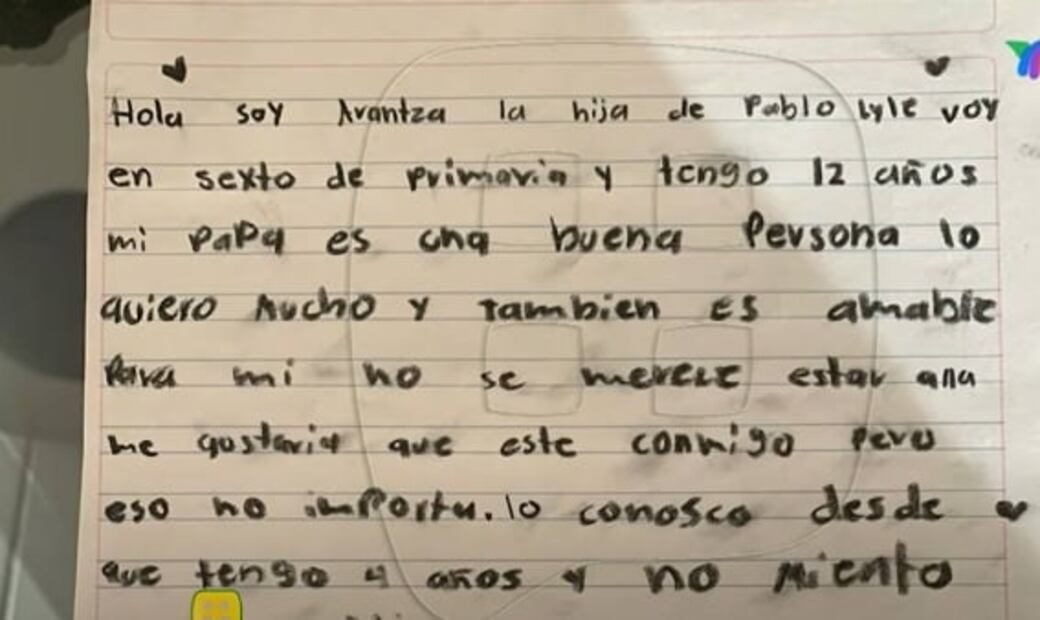 Hola soy Arantza la hija de Pablo Lyle voy
en sexto de primaria y tengo 12 años
mi papa es una buena Persona lo
quiero Mucho y Tambien Es amable
Para mi no se merece estar alla
me gustaria que este conmigo pero
eso no importa. lo conosco desde
que tengo 4 años y no Miento